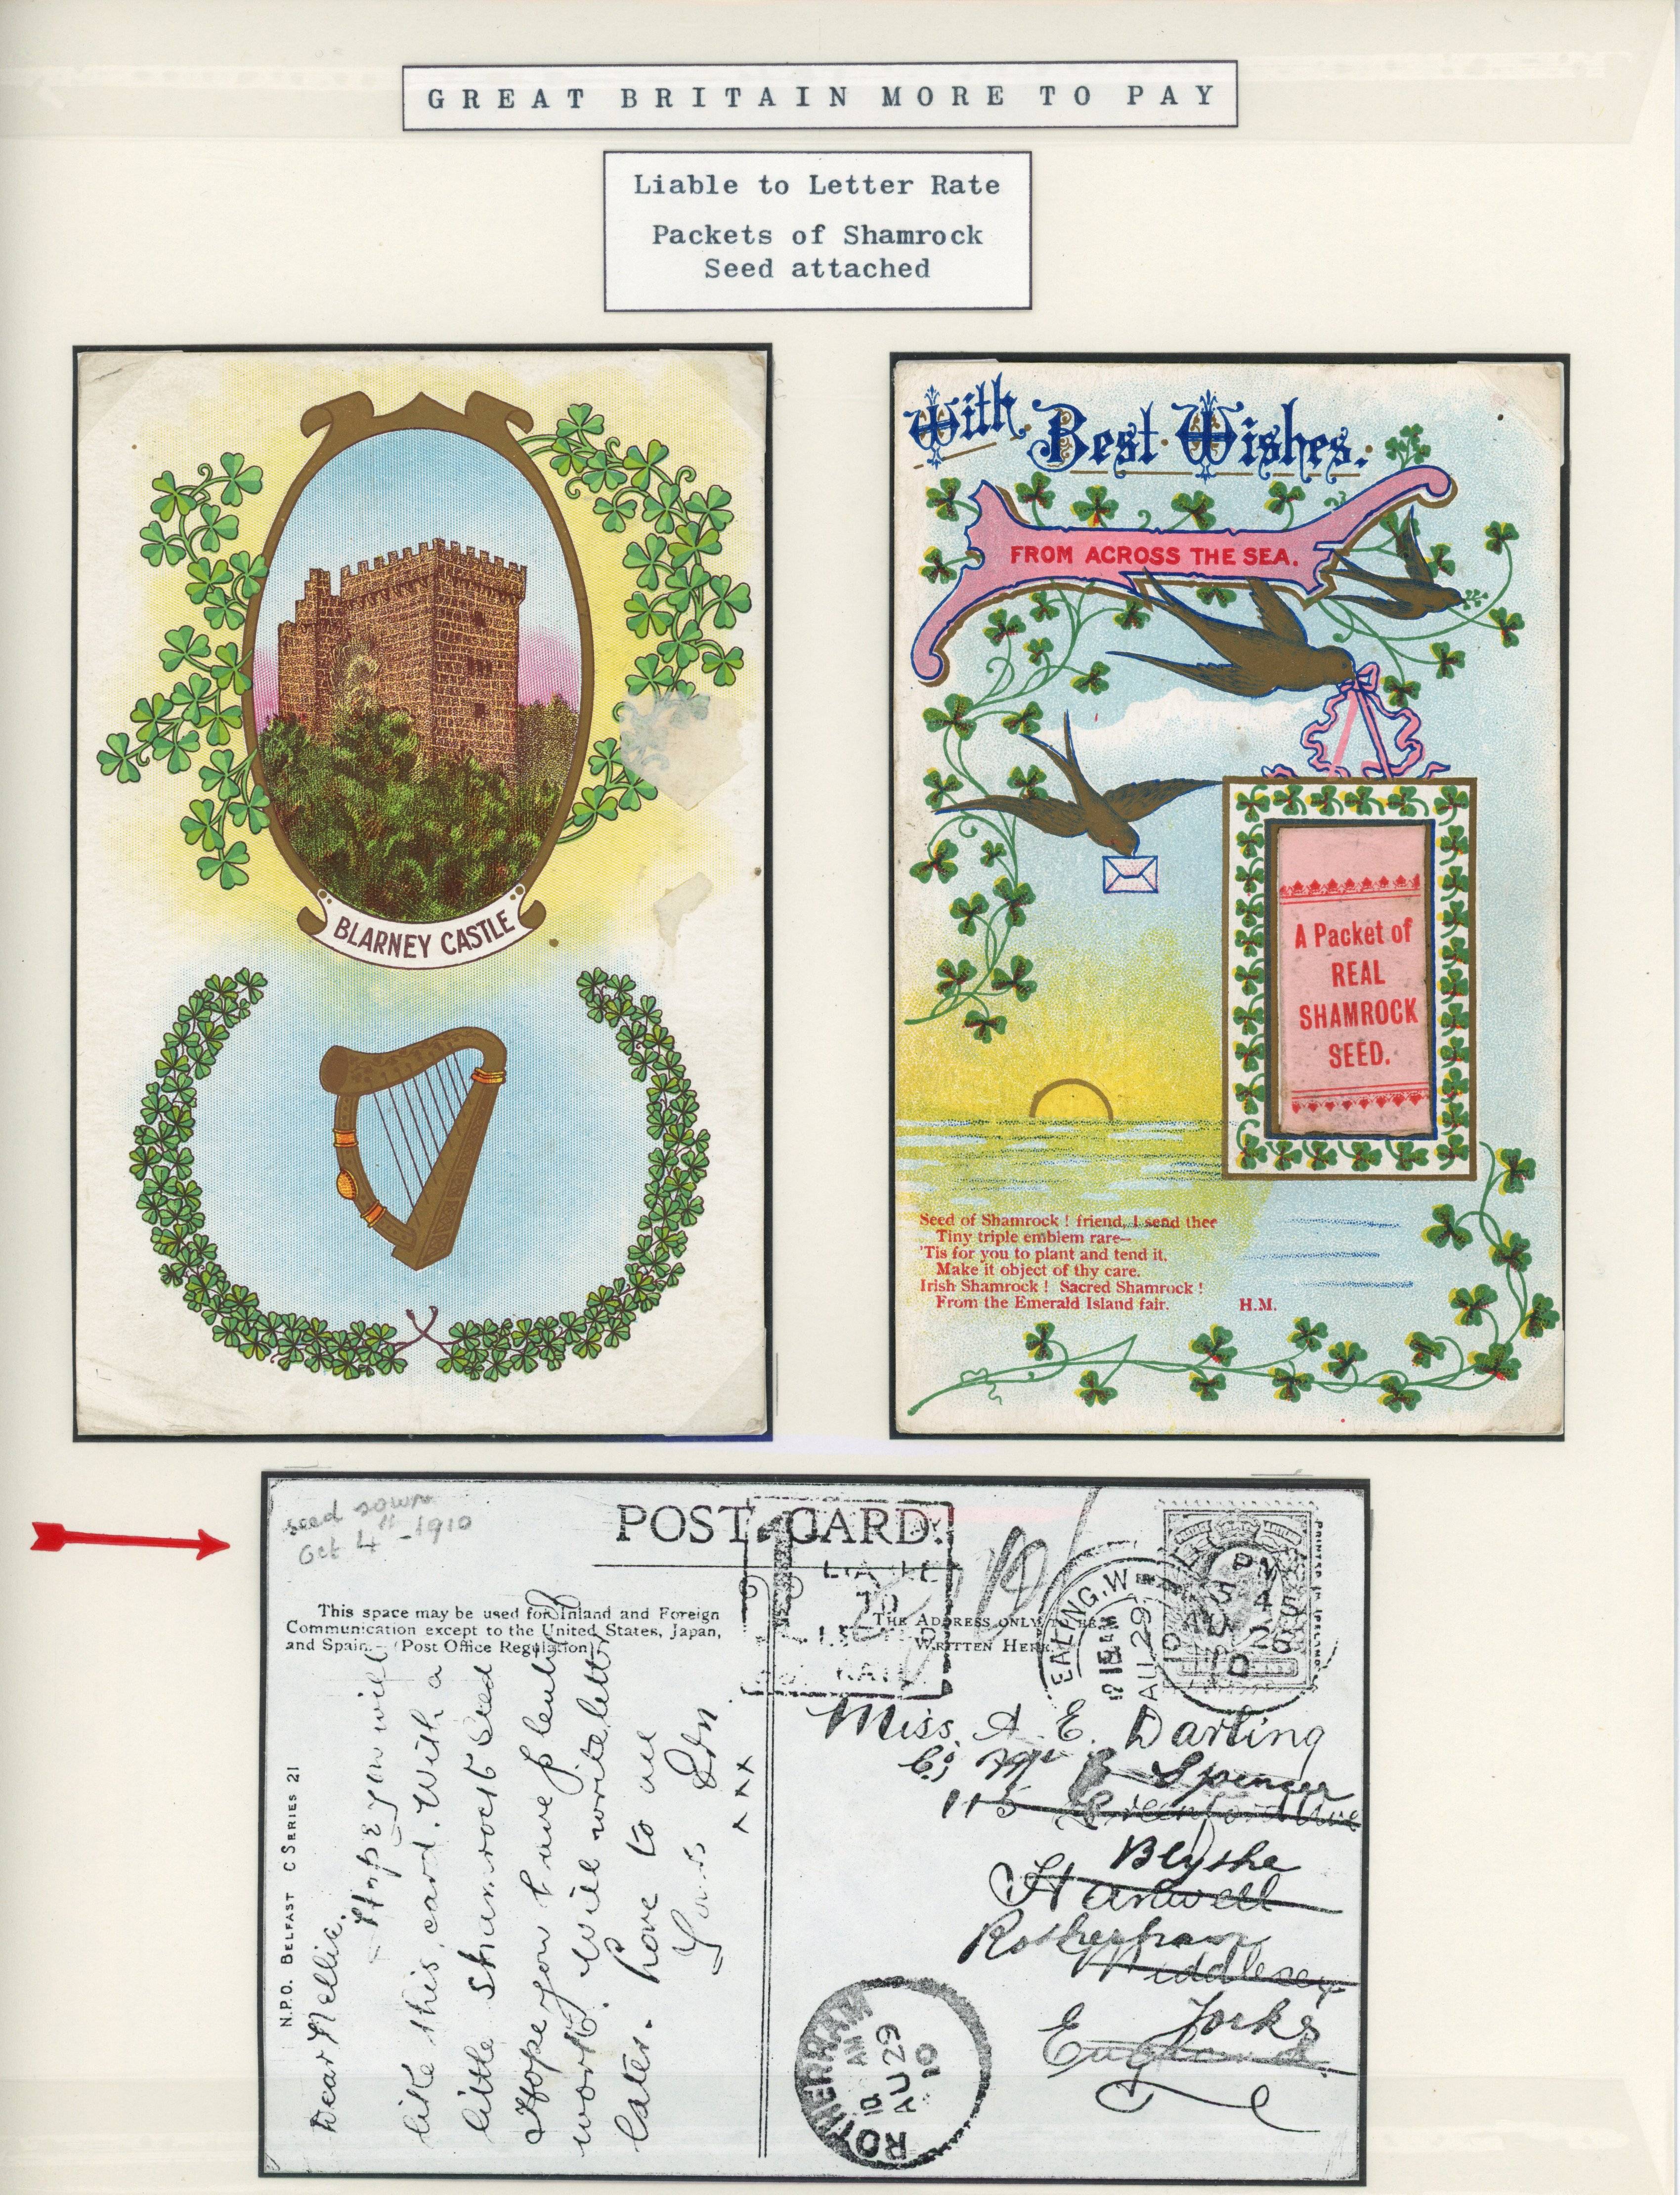 GREAT BRITAIN MORE TO PAY
Liable to Letter Rate
Packets of Shamrock
Seed attached
BLARNEY CASTLE
With Best Wishes.
FROM ACROSS THE SEA.
A Packet of
REAL
SHAMROCK
SEED.
Seed of Shamrock ! friend, I send thee
Tiny triple emblem rare—
'Tis for you to plant and tend it,
Make it object of thy care.
Irish Shamrock ! Sacred Shamrock !
From the Emerald Island fair.
H.M.
seed sown
Oct 4th - 1910
POST CARD.
This space may be used for Inland and Foreign
Communication except to the United States, Japan,
and Spain.— (Post Office Regulation)
THE ADDRESS ONLY
WRITTEN HERE
TO
RATE
EALING.W
12 15 AM
AU 29
10
PRINTED IN IRELAND
N.P.O. BELFAST C SERIES 21
Dear Nellie.
Hope you will
like this card. With a
little shamrock seed
Hope you have plenty
work. Will write letter
later. Love to all
xxx
Miss. A. E. Darling
Spencer
115
Blyshe
Hanwell
Rotherham
Middlesex
Yorks
England
ROTHERHAM
10 AM
AU 29
10